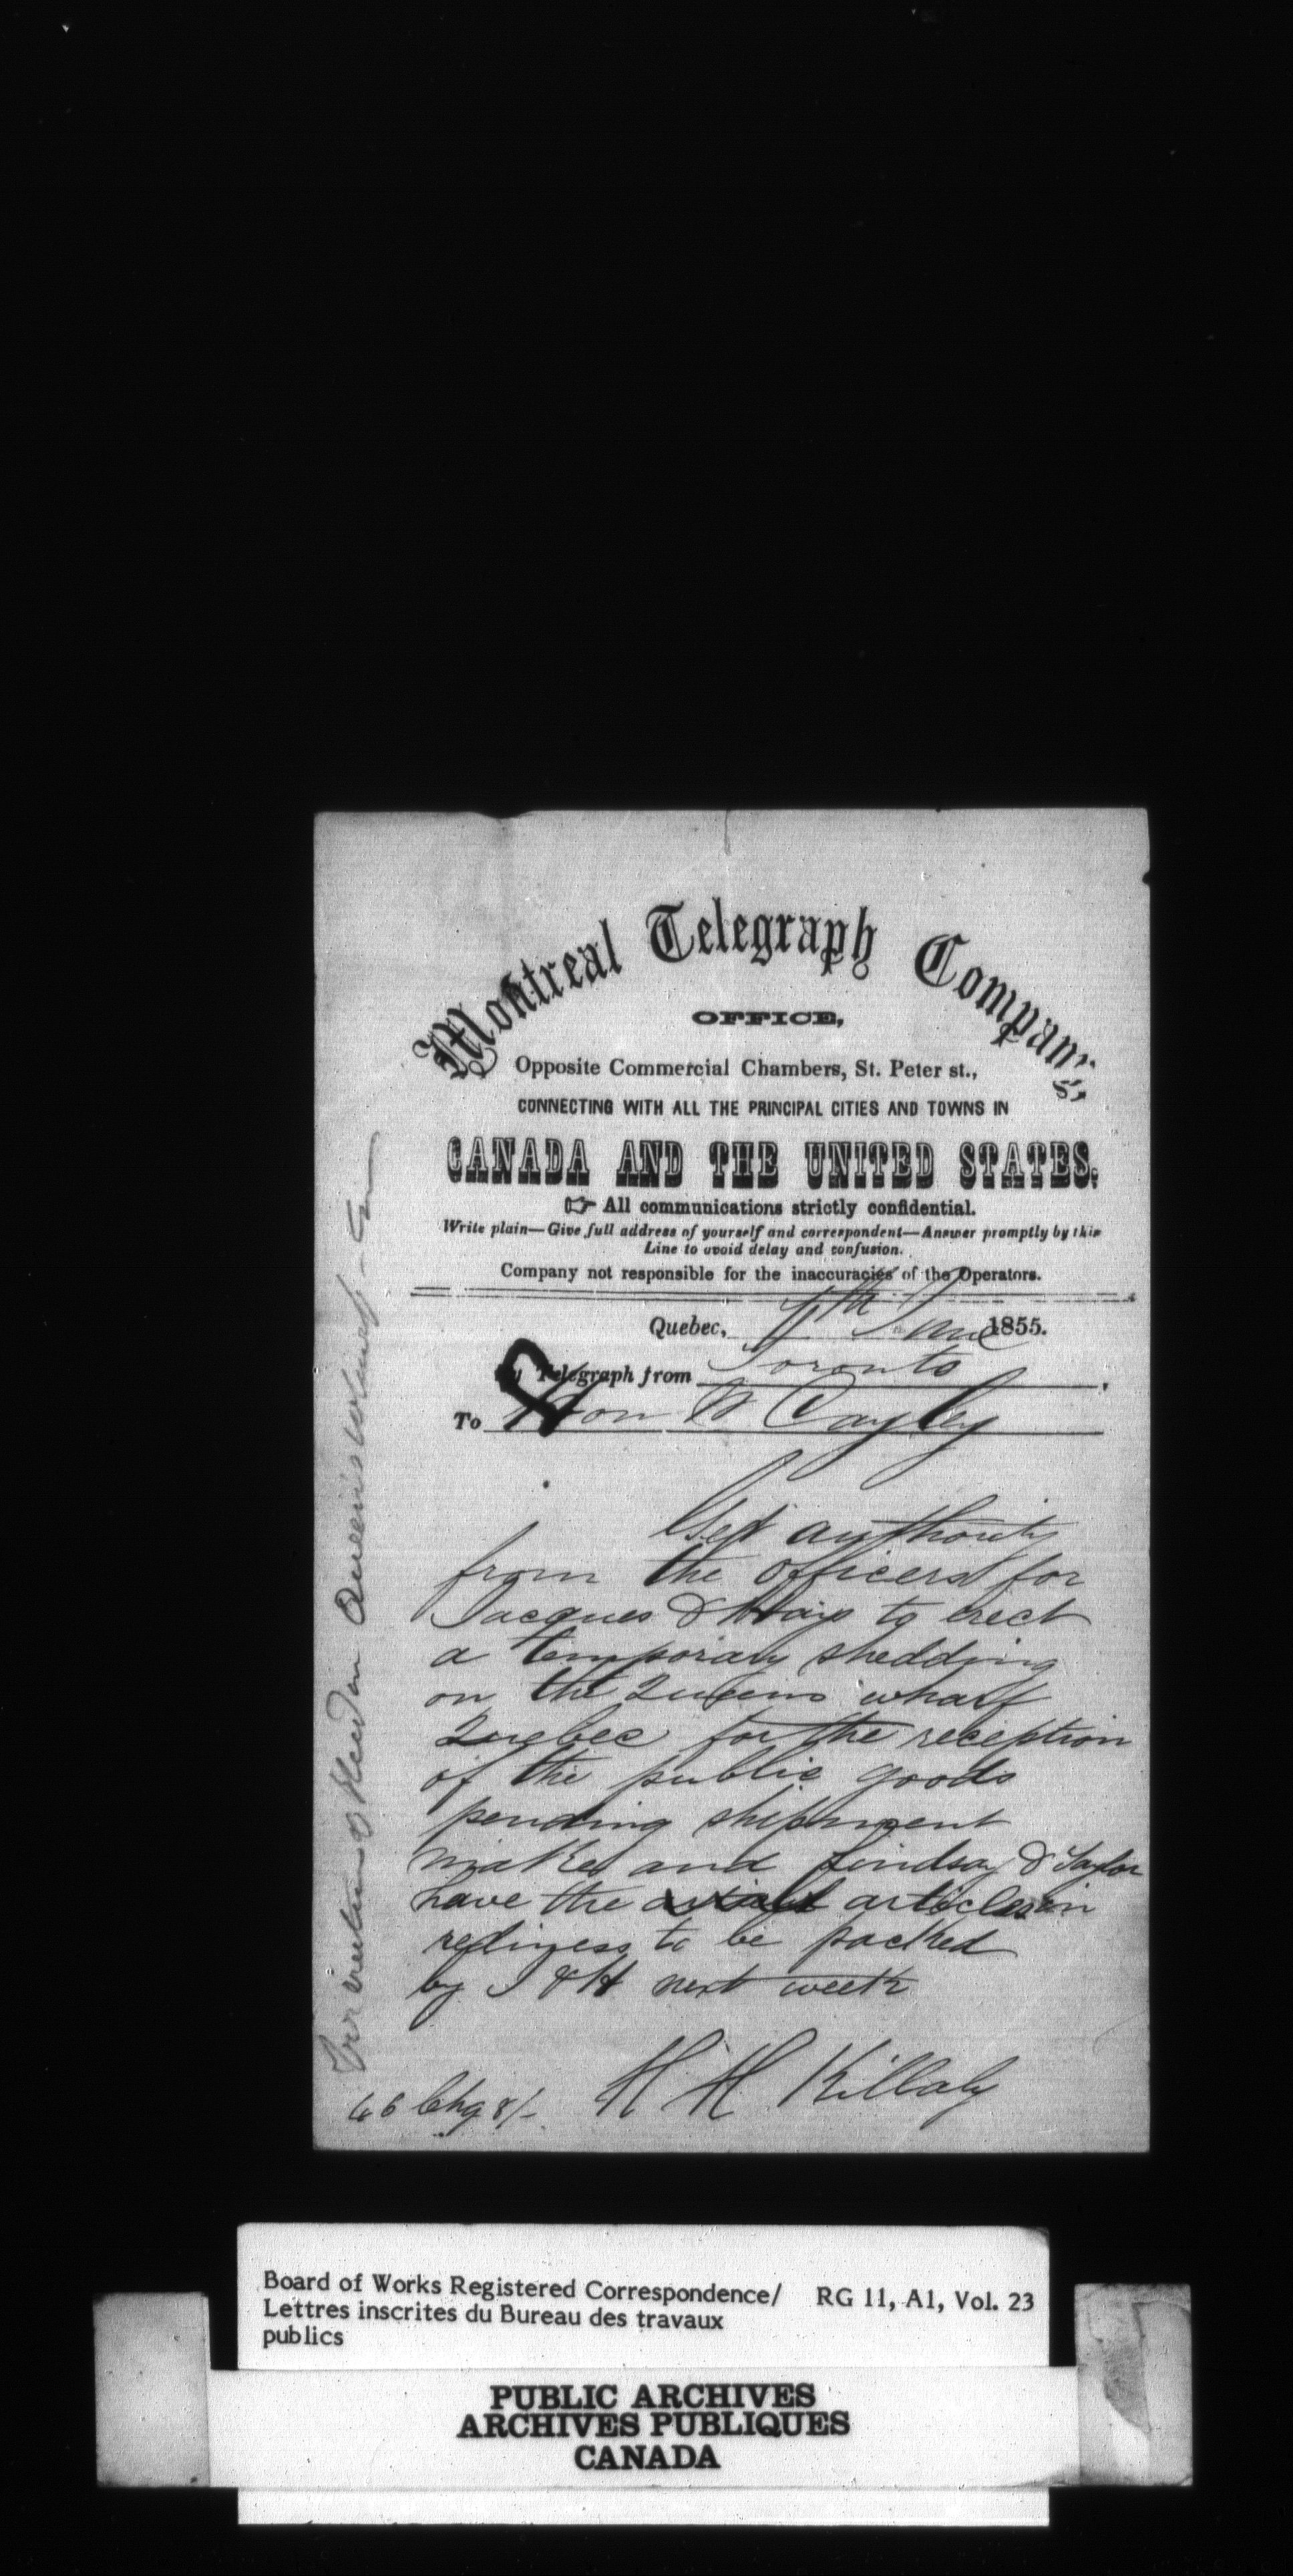 Montreal Telegraph Company's
OFFICE,
Opposite Commercial Chambers, St. Peter st.,
CONNECTING WITH ALL THE PRINCIPAL CITIES AND TOWNS IN
CANADA AND THE UNITED STATES.
☞ All communications strictly confidential.
Write plain—Give full address of yourself and correspondent—Answer promptly by this
Line to avoid delay and confusion.
Company not responsible for the inaccuracies of the Operators.
Quebec, June 1855.
By Telegraph from Toronto,
To Hon W Cayley
Get authority
from the officers for
Jacques & Hays to erect
a temporary shedding
on the Queens wharf
Quebec for the reception
of the public goods
pending shipment
make and Lindsay & Taylor
have the articles in
rediness to be packed
by J & H next week
H H Killaly
46 Chg 8/-
For erection of Shed on Queen's Wharf
Board of Works Registered Correspondence/ RG 11, A1, Vol. 23
Lettres inscrites du Bureau des travaux
publics
PUBLIC ARCHIVES
ARCHIVES PUBLIQUES
CANADA